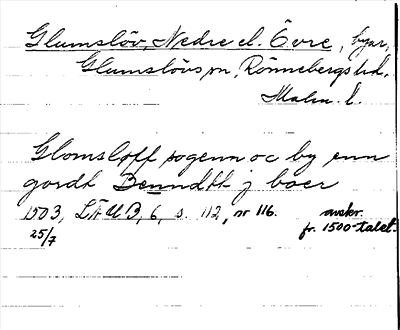 Glumslöv, Nedre el. Övre, byar,
Glumslövs sn, Rönnebergs hd,
Malm. l.
Glomsløff sogenn oc by enn
gordt Benndtt j boer
1503, LÄUB, 6, s. 112, nr 116.
avskr.
25/7
fr. 1500-talet.